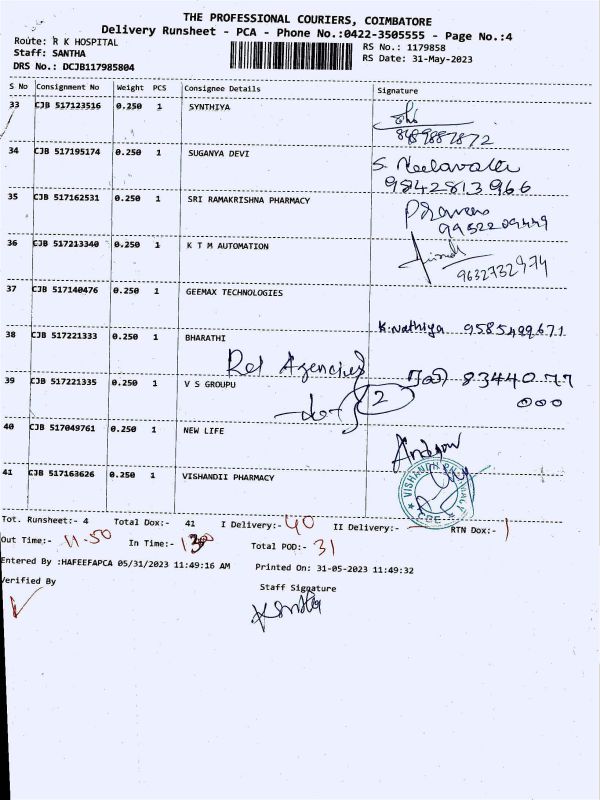 THE PROFESSIONAL COURIERS, COIMBATORE
Delivery Runsheet - PCA - Phone No.:0422-3505555 - Page No.:4
Route: R K HOSPITAL
Staff: SANTHA
DRS No.: DCJB117985804
RS No.: 1179858
RS Date: 31-May-2023
S No Consignment No Weight PCS Consignee Details Signature
33 CJB 517123516 0.250 1 SYNTHIYA
8489887872
34 CJB 517195174 0.250 1 SUGANYA DEVI
S. Neelavathi
9842813966
35 CJB 517162531 0.250 1 SRI RAMAKRISHNA PHARMACY
Praveen
9952209449
36 CJB 517213340 0.250 1 K T M AUTOMATION
9632732974
37 CJB 517140476 0.250 1 GEEMAX TECHNOLOGIES
K.Nathiya 9585499671
38 CJB 517221333 0.250 1 BHARATHI
Rel Agencies
39 CJB 517221335 0.250 1 V S GROUPU
83440 77
000
-do- 2
40 CJB 517049761 0.250 1 NEW LIFE
41 CJB 517163626 0.250 1 VISHANDII PHARMACY
Tot. Runsheet:- 4 Total Dox:- 41 I Delivery:- 40 II Delivery:- — RTN Dox:- 1
Out Time:- 11.50 In Time:- Total POD:- 31
Entered By :HAFEEFAPCA 05/31/2023 11:49:16 AM Printed On: 31-05-2023 11:49:32
Verified By
Staff Signature